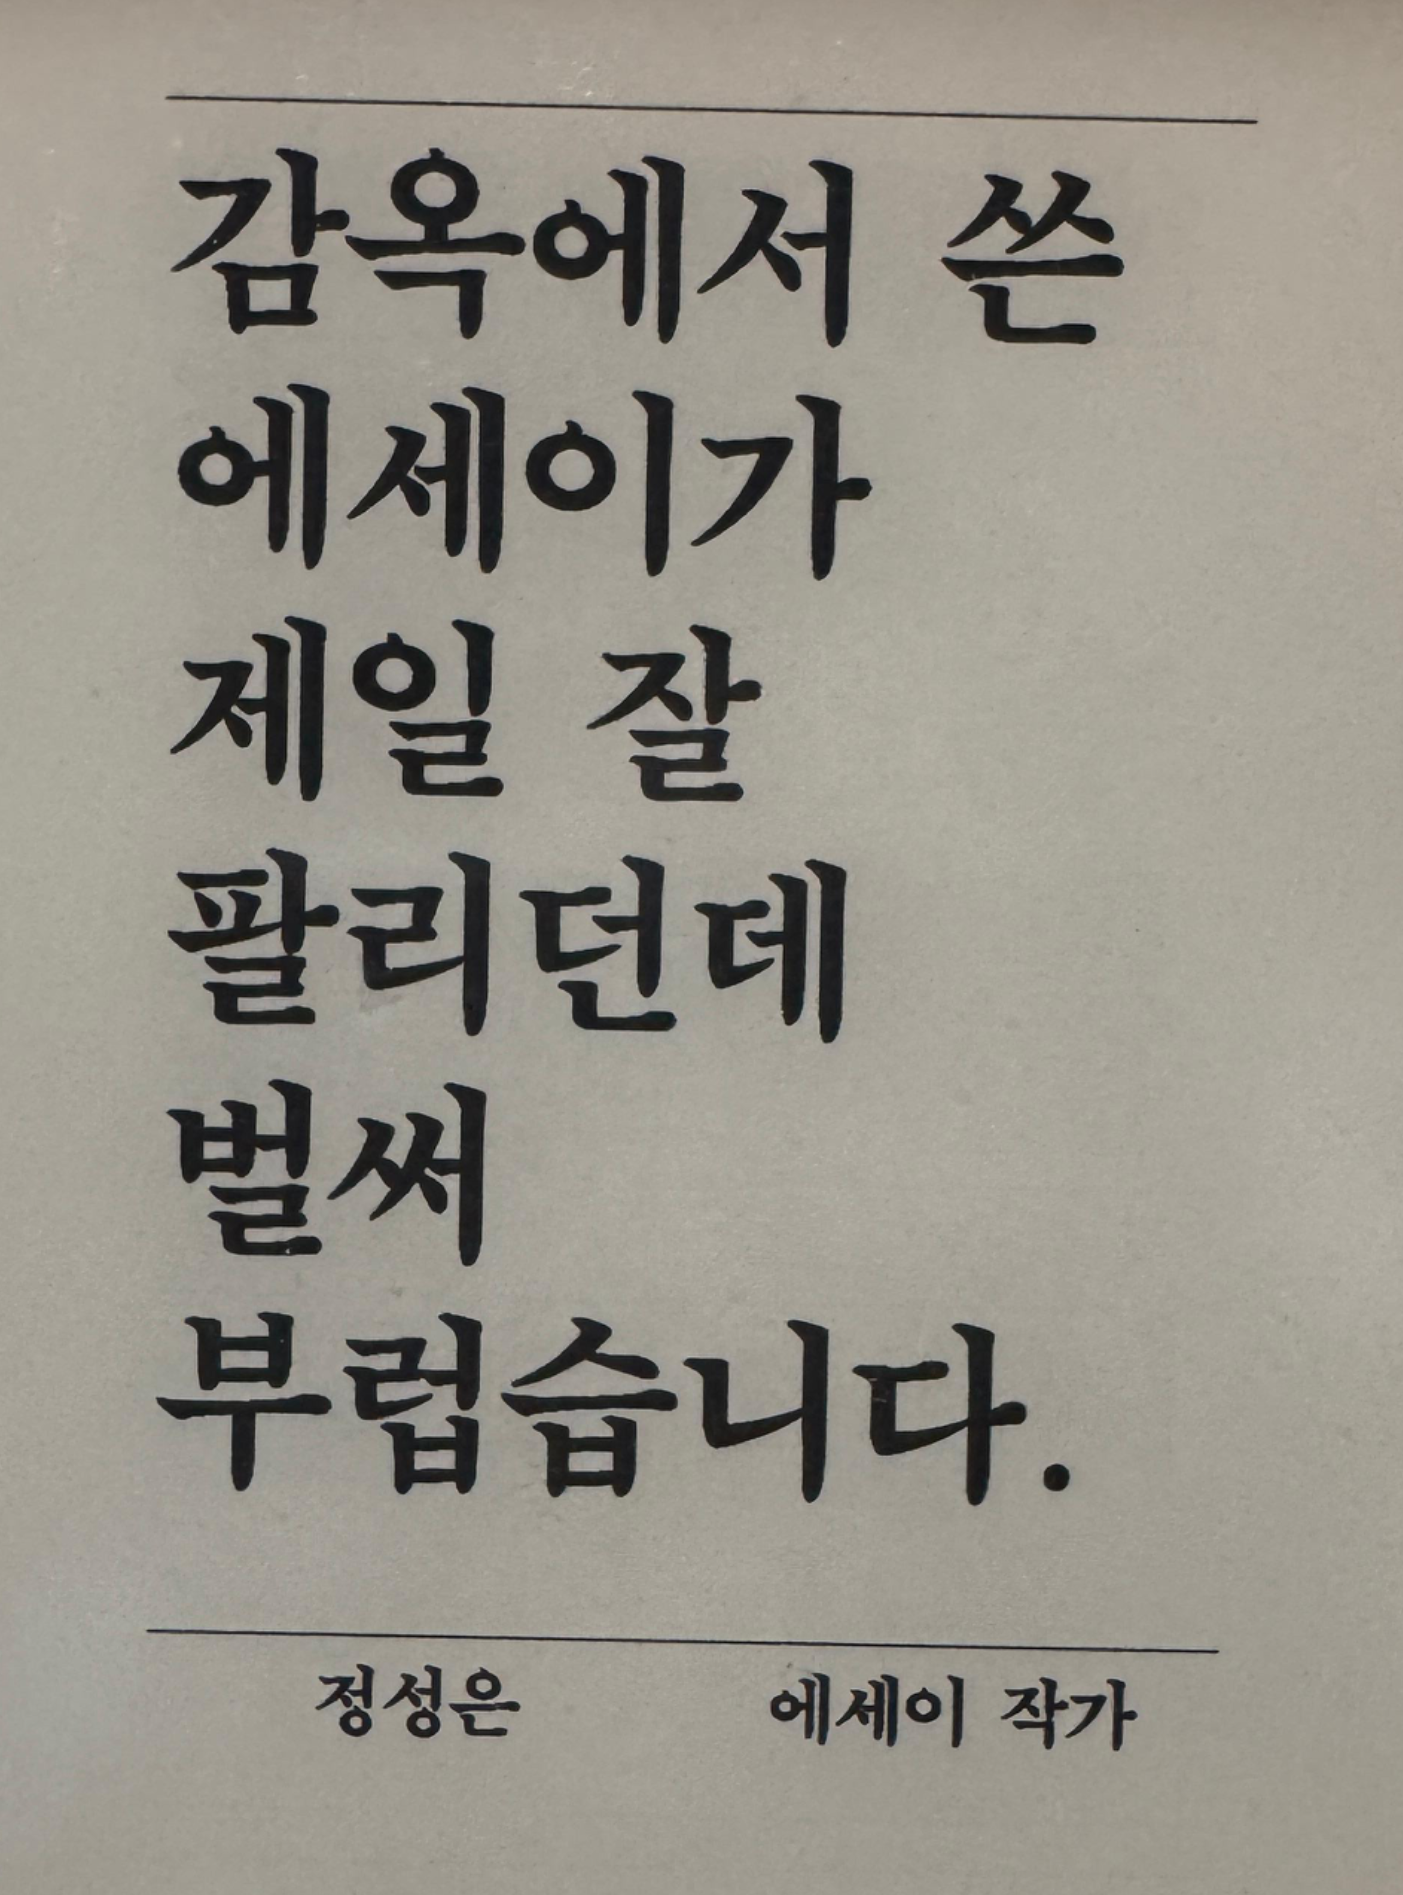 감옥에서 쓴
에세이가
제일 잘
팔리던데
벌써
부럽습니다.
정성은 에세이 작가